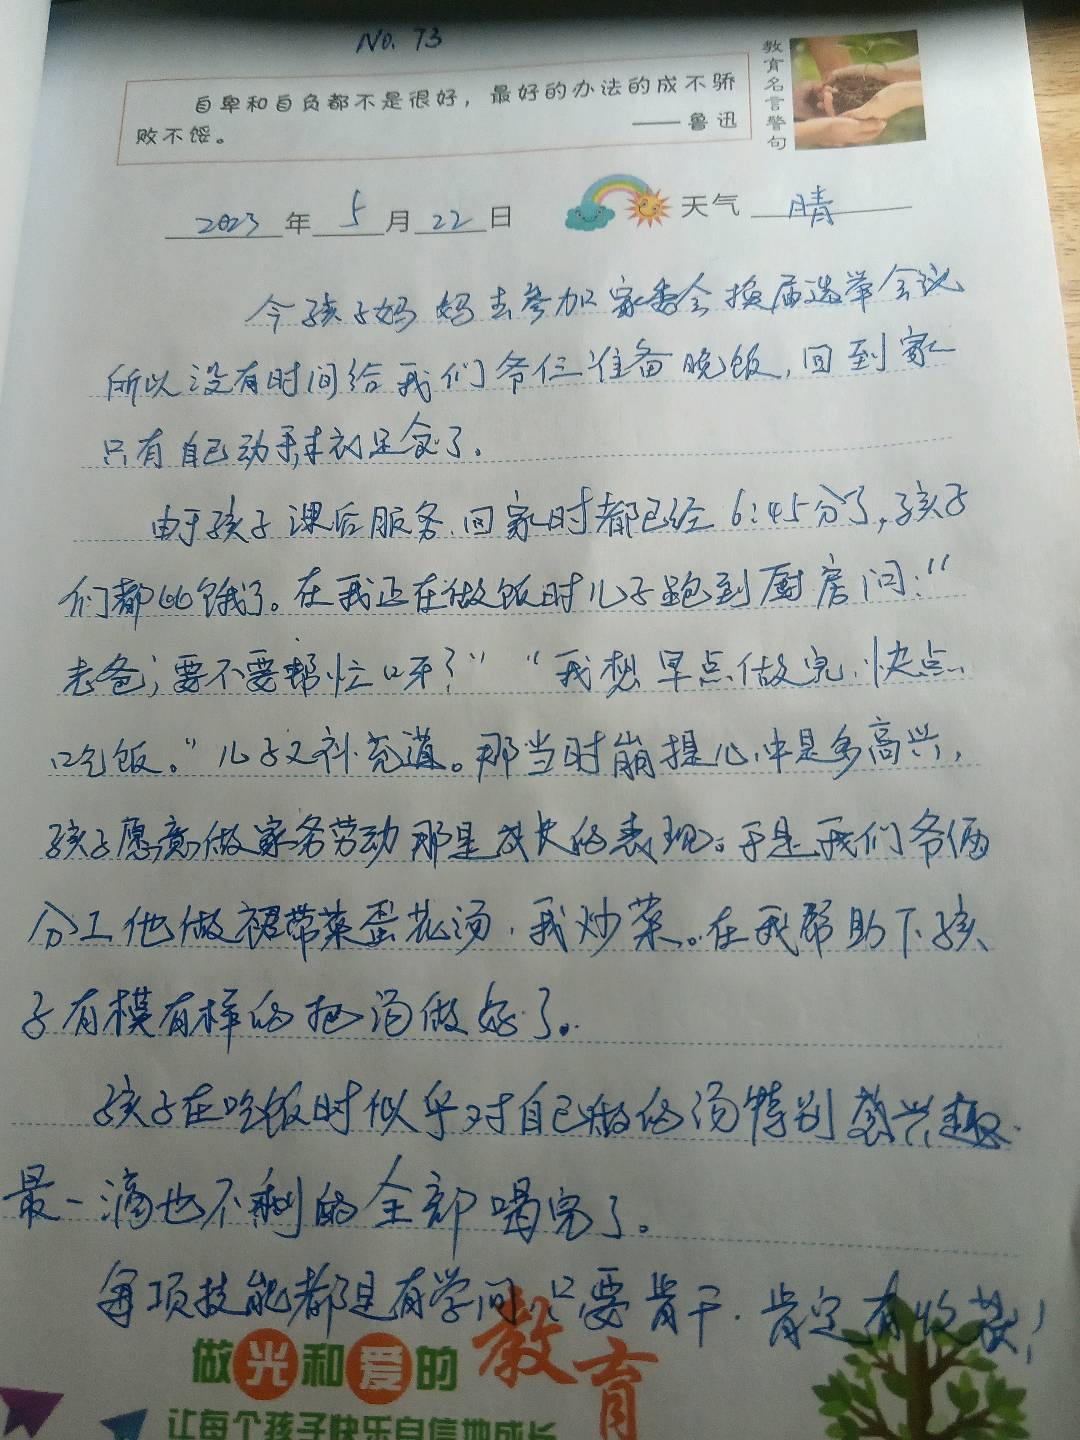 No. 73
自卑和自负都不是很好，最好的办法的成不骄
败不馁。 ——鲁迅
教育名言警句
2023年5月22日 天气 晴
今孩子妈妈去参加家委会换届选举会议
所以没有时间给我们爷仨准备晚饭,回到家
只有自己动手丰衣足食了。
由于孩子课后服务、回家时都已经6:45分了,孩子
们都饿了。在我正在做饭时儿子跑到厨房问:“
老爸;要不要帮忙呀?”“我想早点做完,快点
吃饭。”儿子又补充道。那当时崩提心中是多高兴,
孩子愿意做家务劳动那是成长的表现。于是我们爷俩
分工他做裙带菜蛋花汤,我炒菜。在我帮助下孩
子有模有样的把汤做好了。
孩子在吃饭时似乎对自己做的汤特别感兴趣
最一滴也不剩的全部喝完了。
每项技能都是有学问只要肯干.肯定有收获!
做光和爱的教育
让每个孩子快乐自信地成长